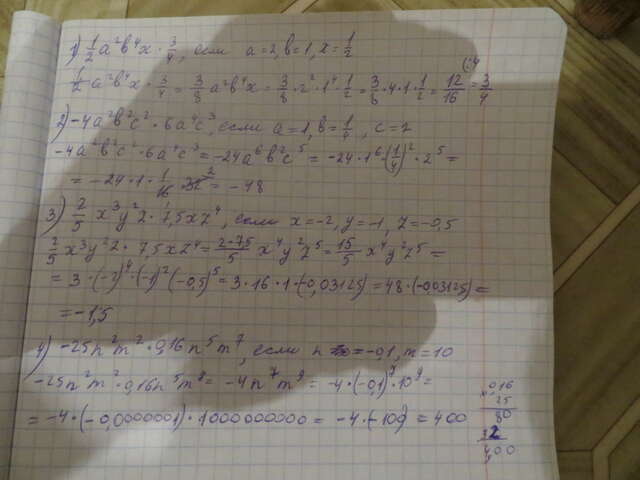 1) 1/2 a²b⁴x · 3/4, если a=2, b=1, x=1/2
(:4
1/2 a²b⁴x · 3/4 = 3/8 a²b⁴x = 3/8 · 2² · 1⁴ · 1/2 = 3/8 · 4 · 1 · 1/2 = 12/16 = 3/4
2) -4a²b²c² · 6a⁴c³, если a=1, b=1/4, c=2
-4a²b²c² · 6a⁴c³ = -24a⁶b²c⁵ = -24 · 1⁶ · (1/4)² · 2⁵ =
= -24 · 1 · 1/16 · 32 2 = -48
3) 2/5 x³y²z · 7,5xz⁴, если x=-2, y=-1, z=-0,5
2/5 x³y²z · 7,5xz⁴ = 2·7,5/5 x⁴y²z⁵ = 15/5 x⁴y²z⁵ =
= 3 · (-2)⁴ · (-1)² (-0,5)⁵ = 3 · 16 · 1 · (-0,03125) = 48 · (-0,03125) =
= -1,5
4) -25n²m² · 0,16n⁵m⁷, если n = -0,1, m = 10
-25n²m² · 0,16n⁵m⁸ = -4n⁷m⁹ = -4 · (-0,1)⁷ · 10⁹ =
= -4 · (-0,0000001) · 1000000000 = -4 · (-100) = 400
× 0,16
25
80
32
4,00